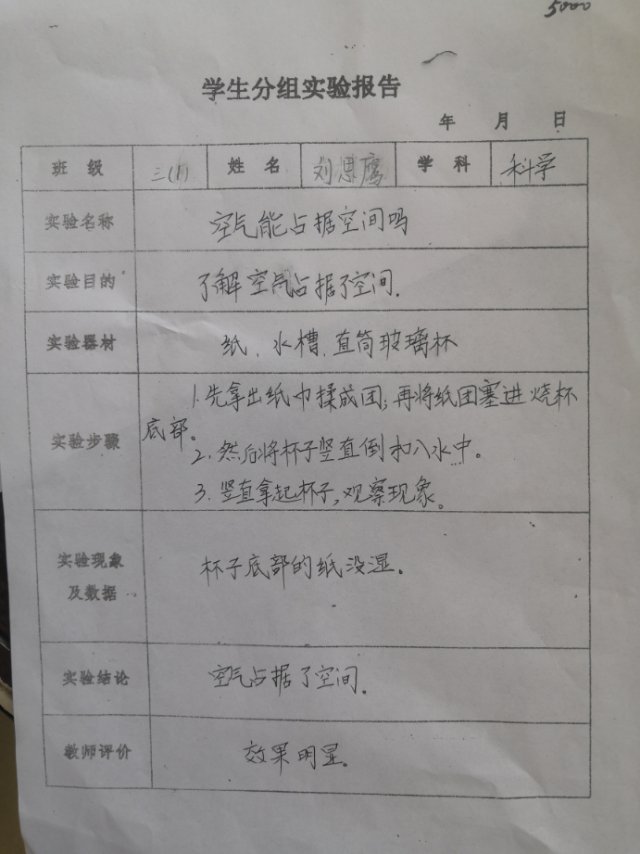 5000
学生分组实验报告
年 月 日
班级 三(1) 姓名 刘思鹰 学科 科学
实验名称 空气能占据空间吗
实验目的 了解空气占据了空间.
实验器材 纸、水槽、直筒玻璃杯
1.先拿出纸巾揉成团;再将纸团塞进烧杯
底部。
实验步骤 2.然后将杯子竖直倒扣入水中。
3.竖直拿起杯子,观察现象。
实验现象 杯子底部的纸没湿.
及数据
实验结论 空气占据了空间.
教师评价 效果明显.